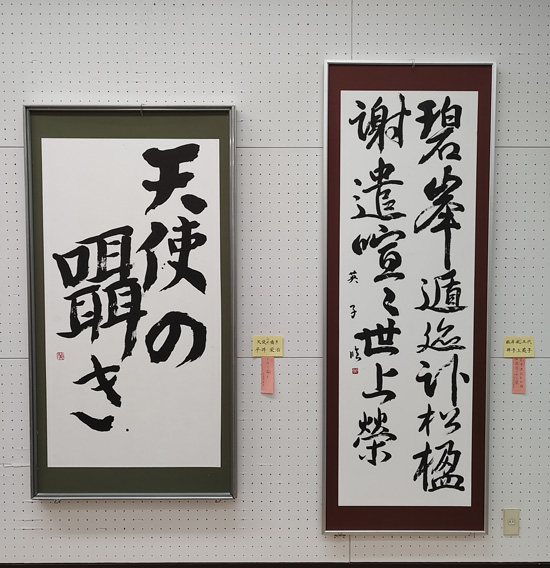 天使の
囁き
碧峯遁迹訃松楹
謝遣喧〻世上榮
英子臨
天使の囁き